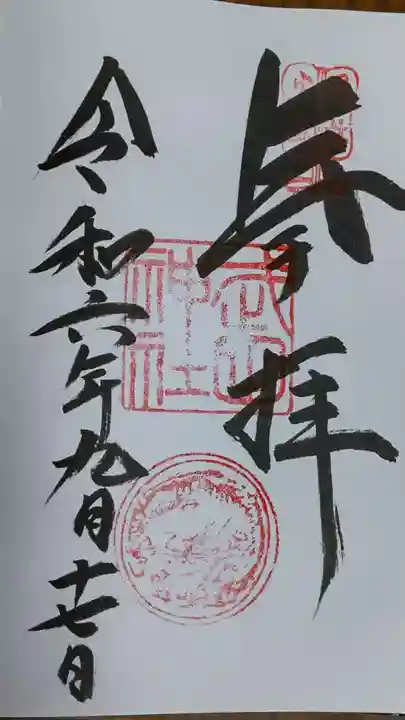 奉拝
武山神社
令和六年九月十七日